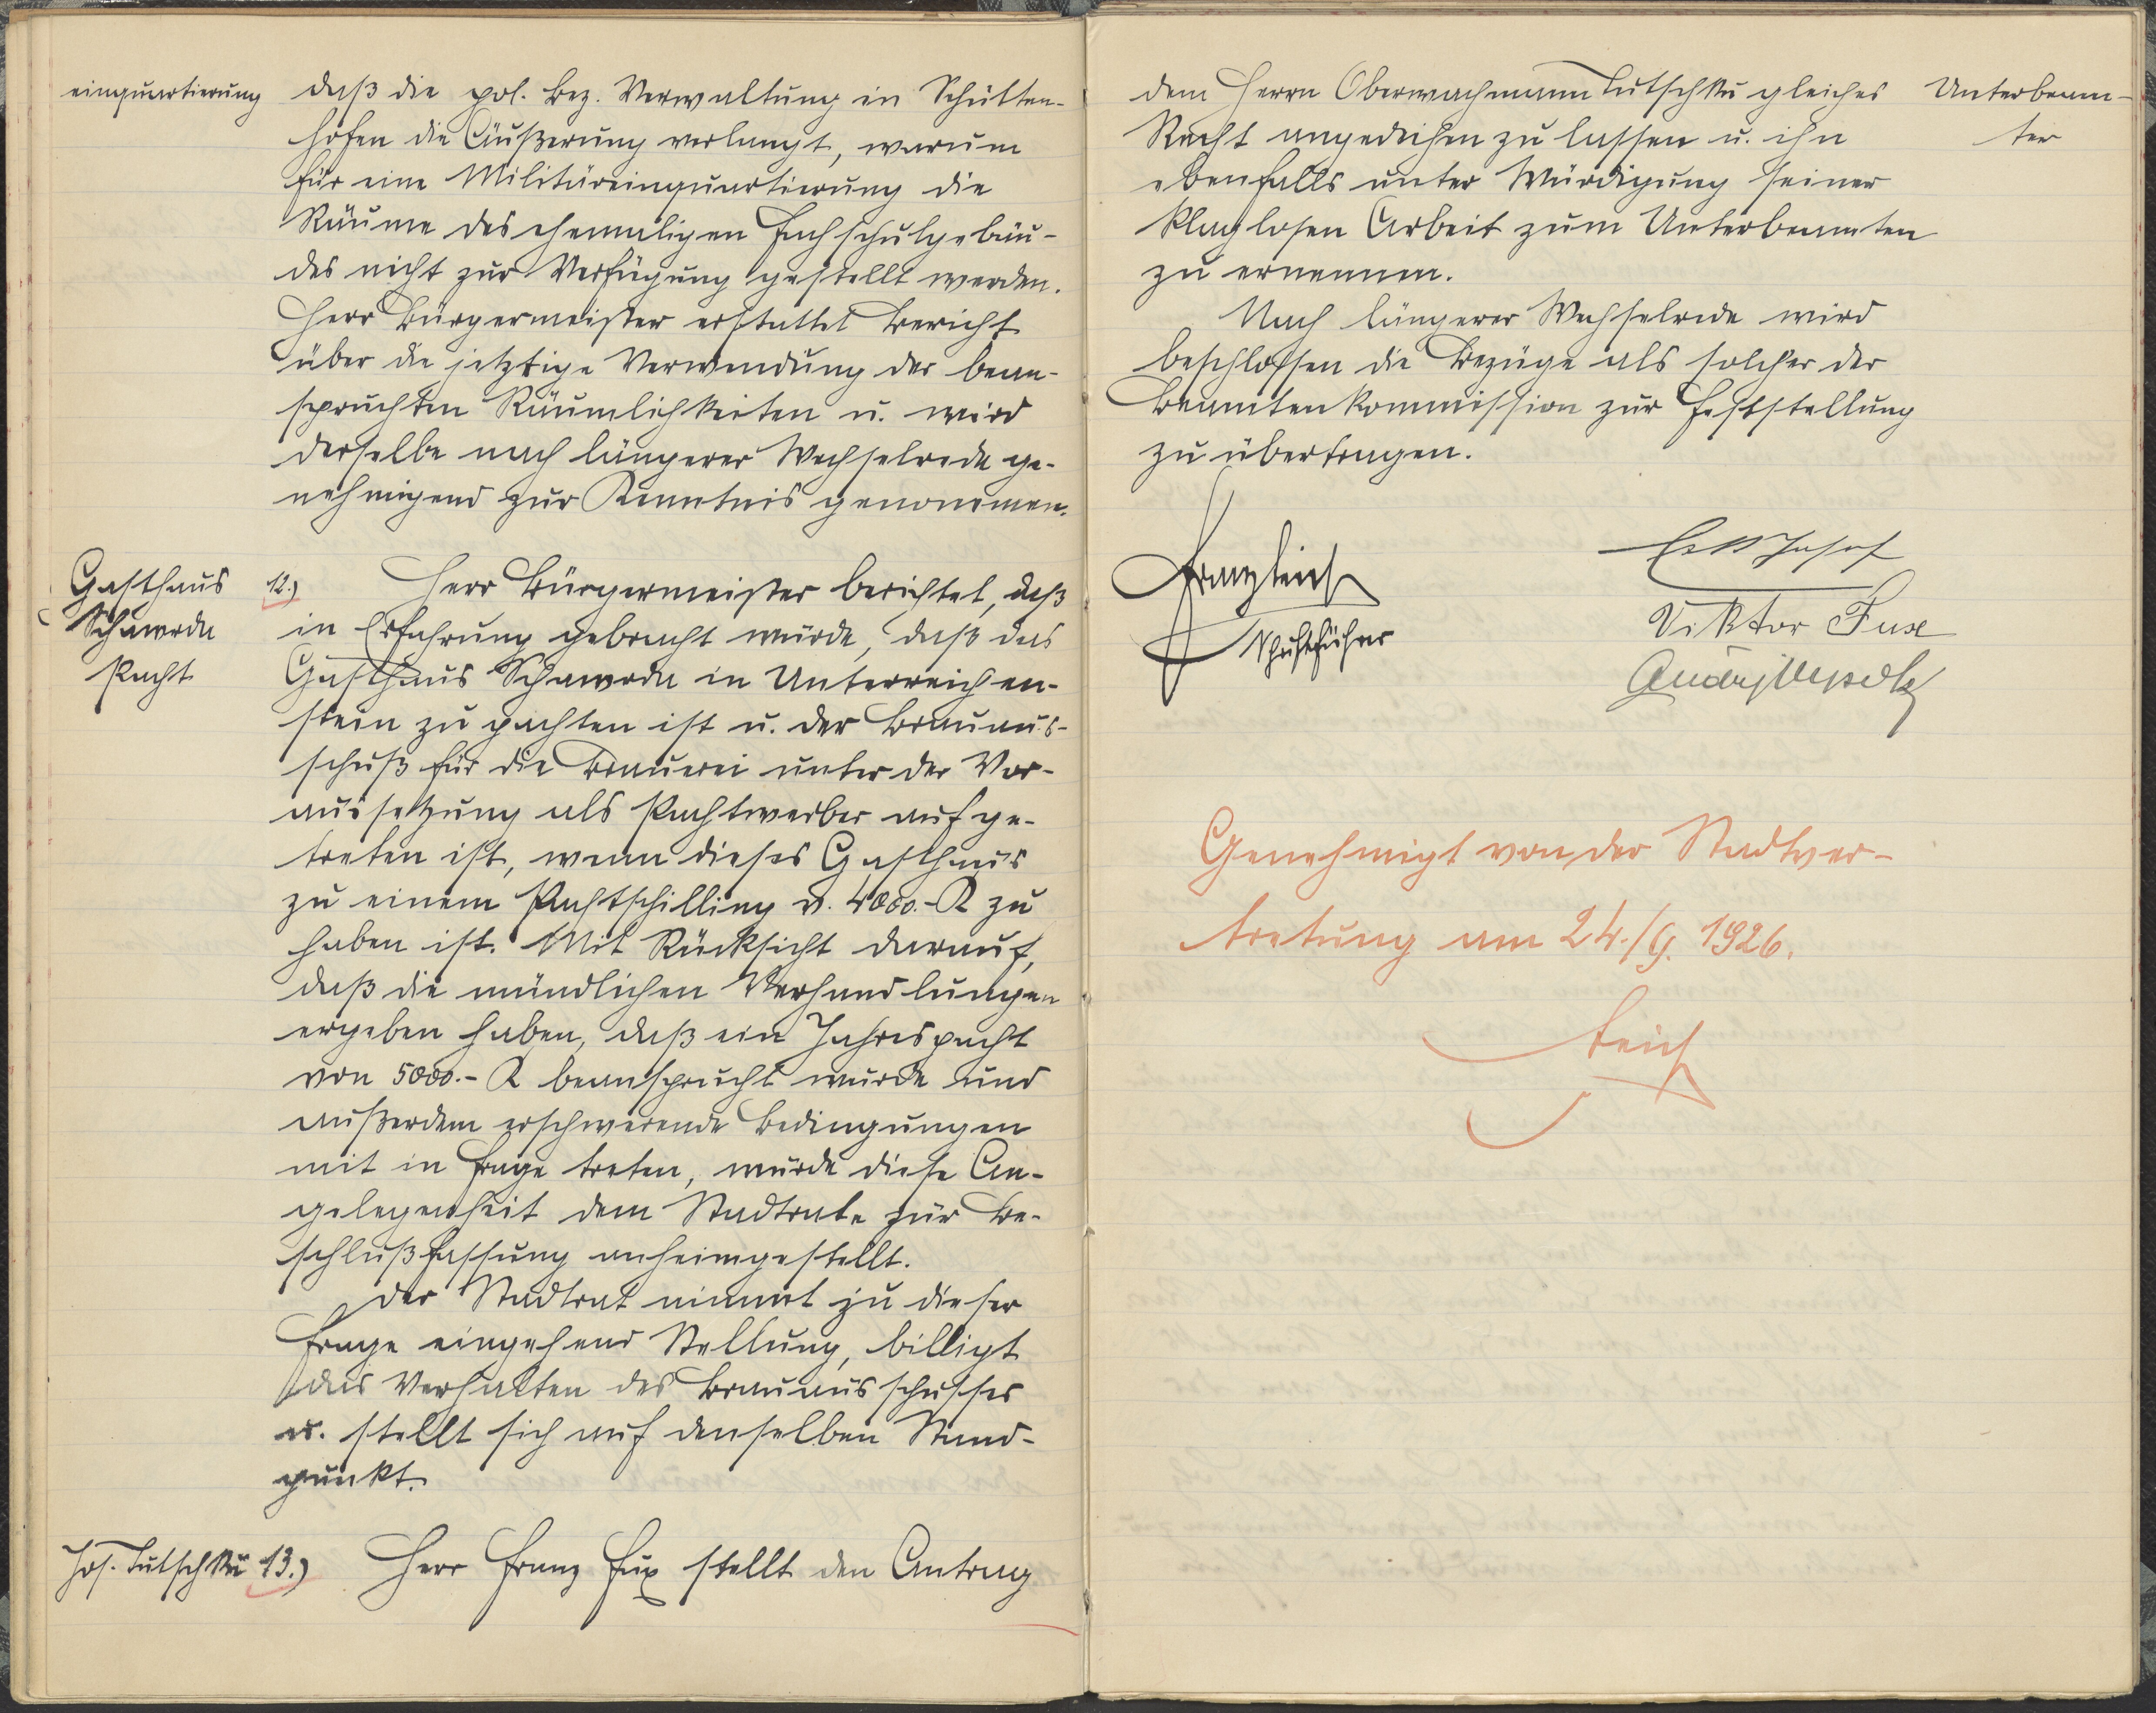 einquartierung
daß die pol. Bez. Verwaltung in Schütten-
hofen die Äußerung verlangt, warum
für eine Militäreinquartierung die
Räume des ehemaligen Fachschulgebäu-
des nicht zur Verfügung gestellt werden.
Herr Bürgermeister erstattet Bericht
über die jetztige Verwendung der bean-
spruchten Räumlichkeiten u. wird
derselbe nach längerer Wechselrede ge-
nehmigend zur Kenntnis genommen.
Gasthaus
Schawoda
Pacht
12.) Herr Bürgermeister berichtet, daß
in Erfahrung gebracht wurde, daß das
Gasthaus Schawoda in Unterreichen-
stein zu pachten ist u. der Brauaus-
schuß für die Brauerei unter der Vor-
aussetzung als Pachtwerber aufge-
treten ist, wenn dieses Gasthaus
zu einem Pachtschilling v. 4000.- K zu
haben ist. Mit Rücksicht darauf,
daß die mündlichen Verhandlungen
ergeben haben, daß ein Jahrespacht
von 5000.- K beansprucht wurde und
außerdem erschwerende Bedingungen
mit in Frage treten, wurde diese An-
gelegenheit dem Stadtrate zur Be-
schlußfassung anheimgestellt.
Der Stadtrat nimmt zu dieser
Frage eingehend Stellung, billigt
das Verhalten des Brauausschusses
u. stellt sich auf denselben Stand-
punkt.
Jos. Tutschku
13.) Herr Franz Fux stellt den Antrag
dem Herrn Oberwachmann Tutschku gleiches
Recht angedeihen zu lassen u. ihn
ebenfalls unter Würdigung seiner
klaglosen Arbeit zum Unterbeamten
zu ernennen.
Unterbeam-
ter
Nach längerer Wechselrede wird
beschlossen die Bezüge als solcher der
Beamtenkommission zur Feststellung
zu übertragen.
Franz Teich
Schriftführer
Josef
Viktor Fux
Genehmigt von der Stadtver-
tretung am 24./9. 1926.
Teich